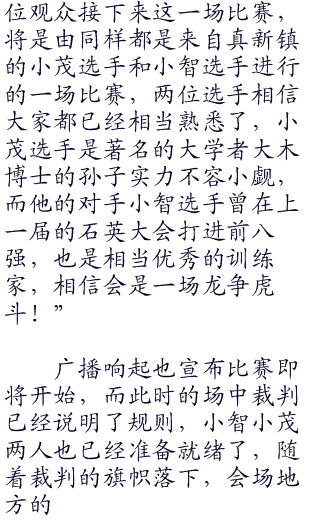 位观众接下来这一场比赛，
将是由同样都是来自真新镇
的小茂选手和小智选手进行
的一场比赛，两位选手相信
大家都已经相当熟悉了，小
茂选手是著名的大学者大木
博士的孙子实力不容小觑，
而他的对手小智选手曾在上
一届的石英大会打进前八
强，也是相当优秀的训练
家，相信会是一场龙争虎
斗！”
广播响起也宣布比赛即
将开始，而此时的场中裁判
已经说明了规则，小智小茂
两人也已经准备就绪了，随
着裁判的旗帜落下，会场地
方的